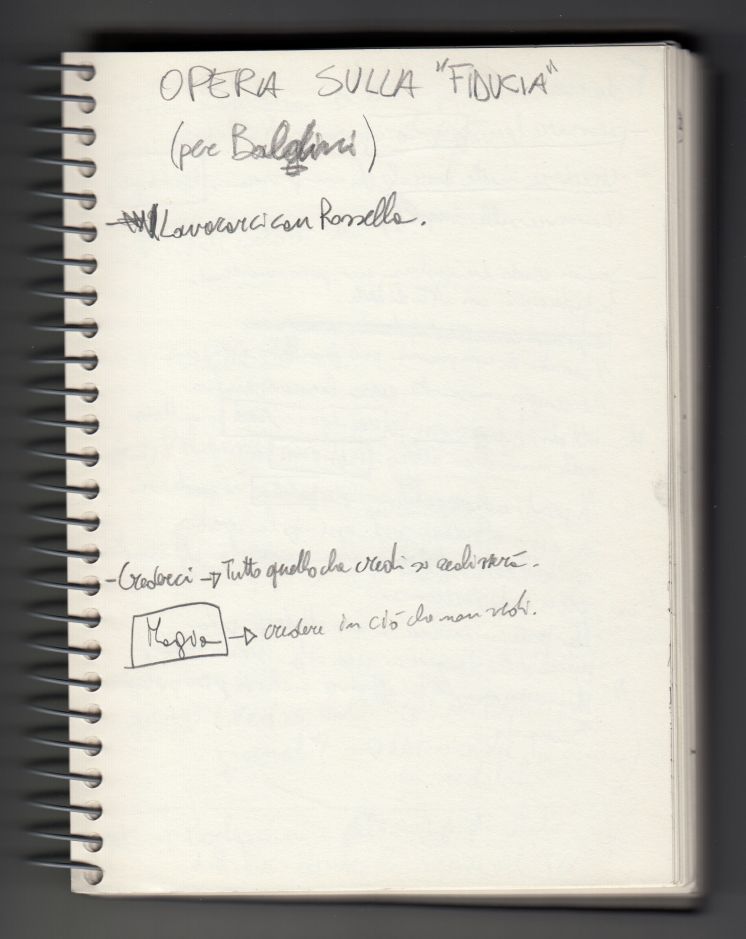 OPERA SULLA "FIDUCIA"
(per Baldini)
- Lavorarci con Rossella.
- Crederci → Tutto quello che credi si realizzerà.
Magia → credere in ciò che non vedi.